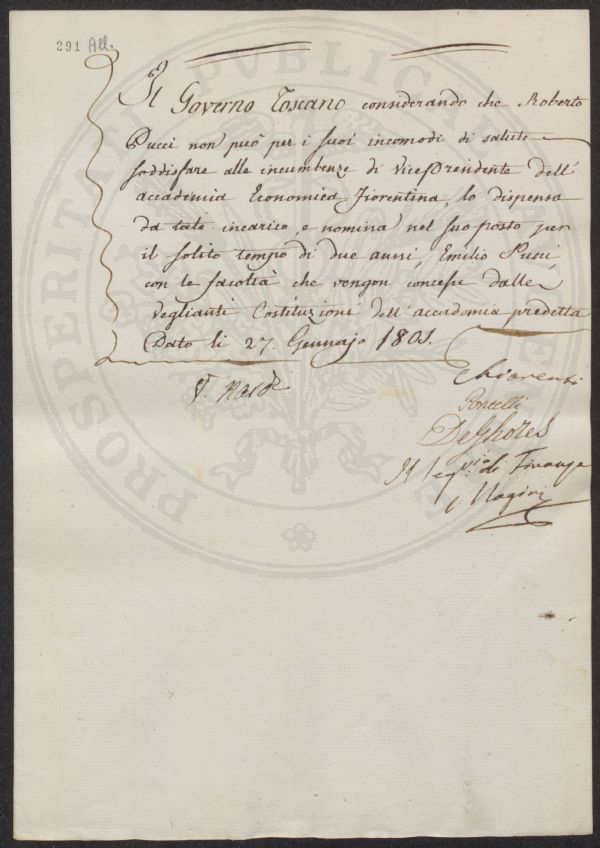 291 All.
PROSPERITATI PVBLICAE
Il Governo Toscano considerando che Roberto
Pucci non può per i suoi incomodi di salute
soddisfare alle incumbenze di VicePresidente dell'
accademia Economica Fiorentina, lo dispensa
da tale incarico, e nomina nel suo posto per
il solito tempo di due anni, Emilio Pucci
con le facoltà che vengon concesse dalle
veglianti Costituzioni dell'accademia predetta
Dato li 27 Gennajo 1801.
Chiarenti
Pontelli
DeGhores
Il Seg.rio di Finanze